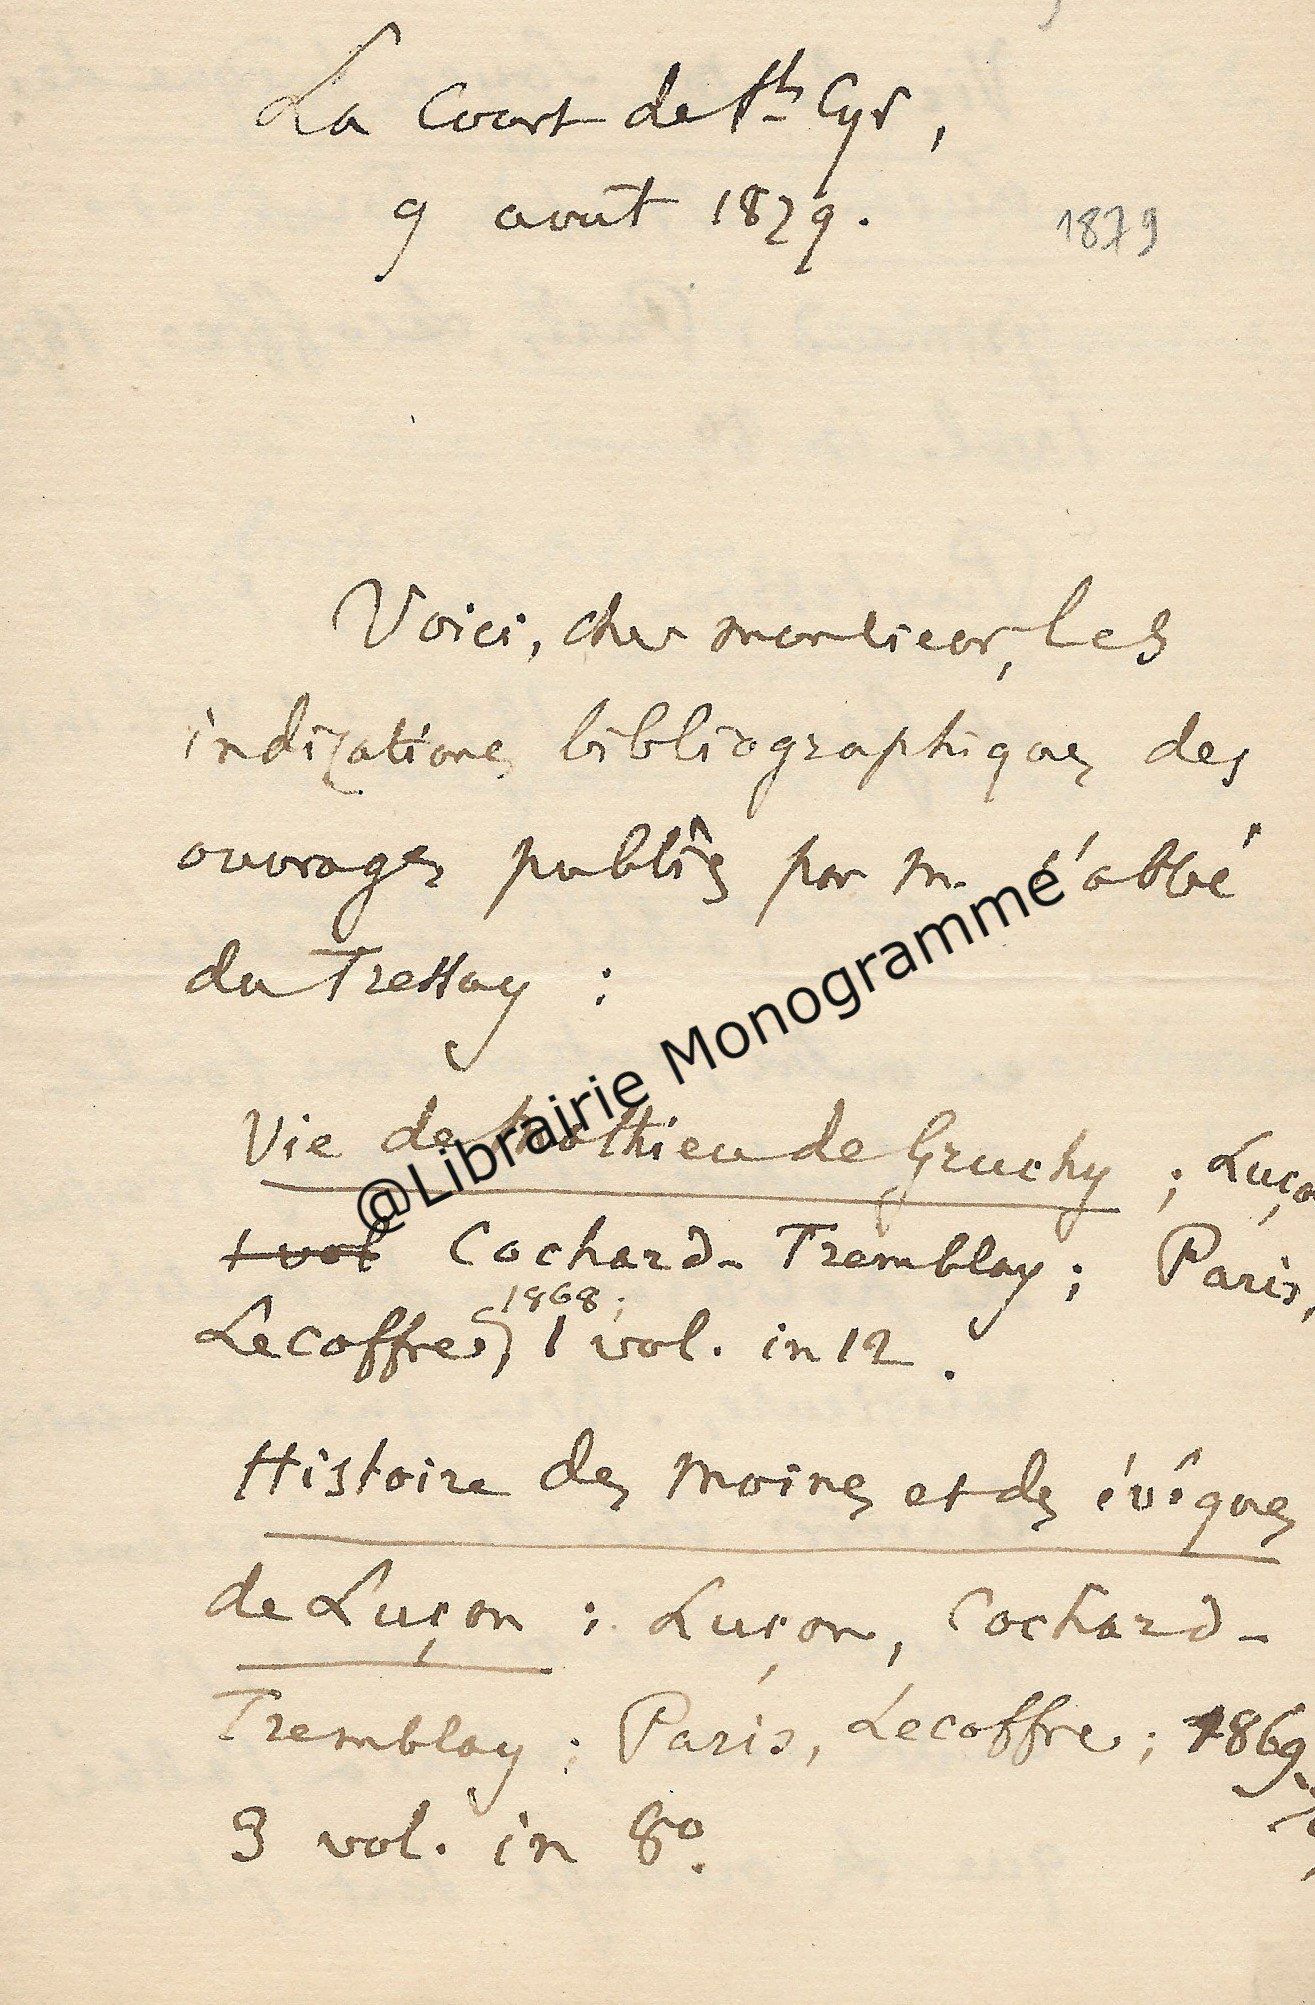 La Court de St Cyr,
9 août 1879. 1879
Voici, cher monsieur, les
indications bibliographiques des
ouvrages publiés par m. l'abbé
du Tressay :
Vie de Mathieu de Gruchy ; Luço
1 vol Cochard-Tremblay ; Paris,
1868 ;
Lecoffre, 1 vol. in 12.
Histoire des moines et des évêques
de Luçon ; Luçon, Cochard-
Tremblay ; Paris, Lecoffre ; 1869
3 vol. in 8º.
@Librairie Monogramme